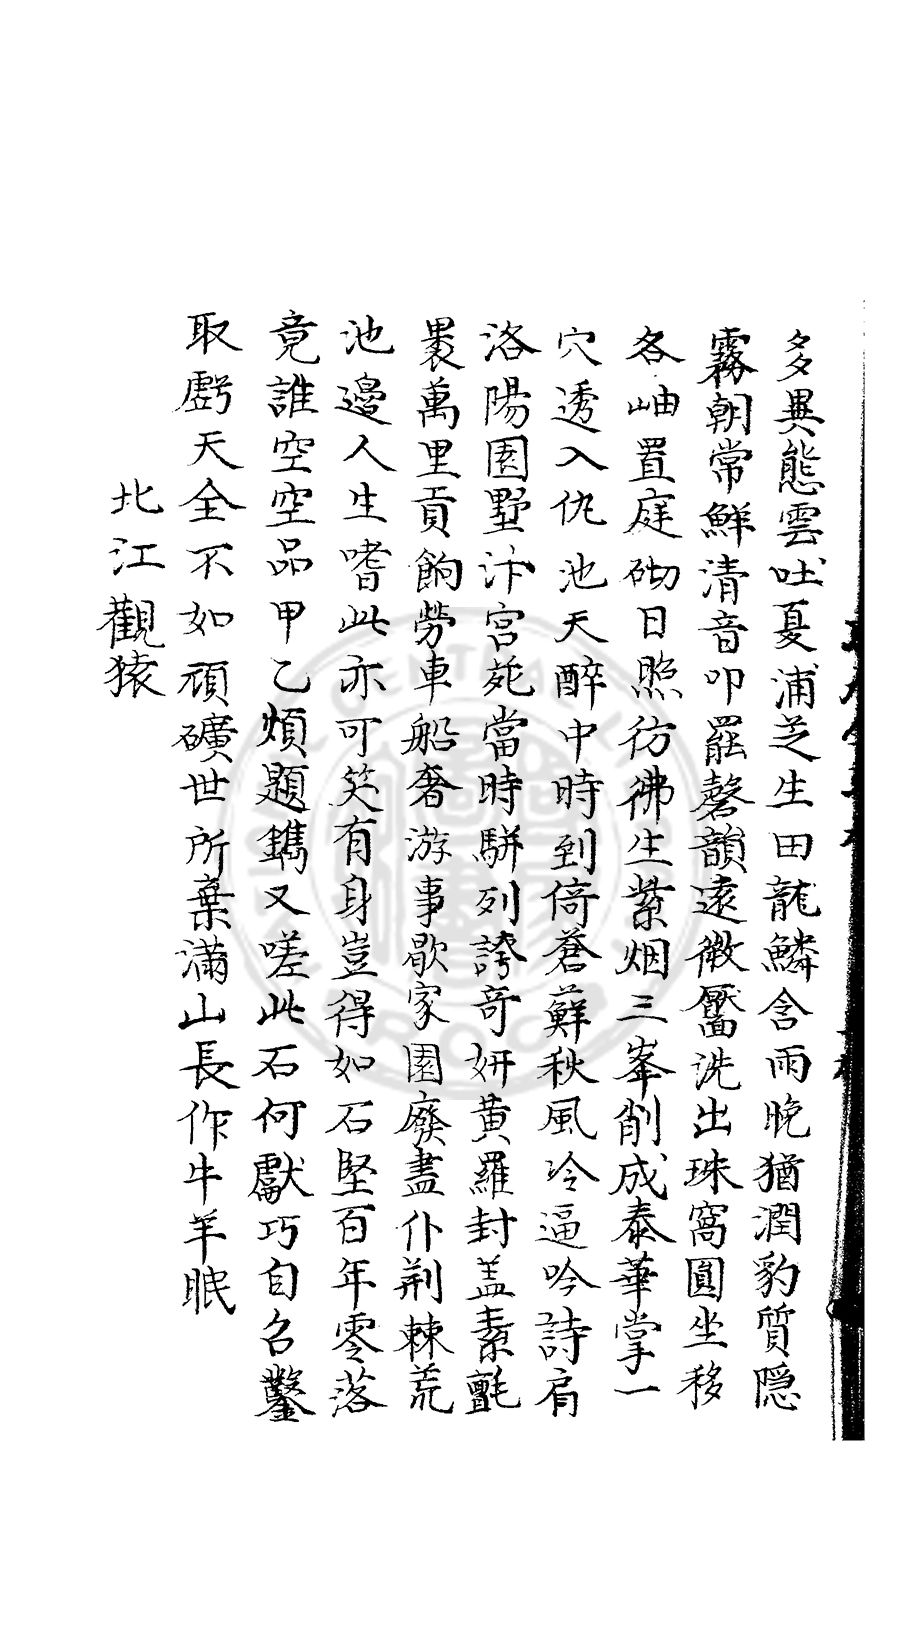 多異態雲吐夏浦芝生田龍鱗含雨晩猶潤豹質隠
霧朝常鮮清音叩罷磬韻遠微靨洗出珠窩圓坐移
各岫置庭砌日照彷彿生紫烟三峯削成泰華掌一
穴透入仇池天醉中時到倚蒼蘚秋風冷逼吟詩肩
洛陽園墅汴宮苑當時駢列誇竒妍黄羅封盖素氈
裹萬里貢餉勞車船奢游事歇家園廢盡仆荆棘荒
池邉人生嗜此亦可笑有身豈得如石堅百年零落
竟誰空空品甲乙煩題鐫又嗟此石何獻巧自召鑿
取虧天全不如頑礦世所棄滿山長作牛羊眠
北江觀猿